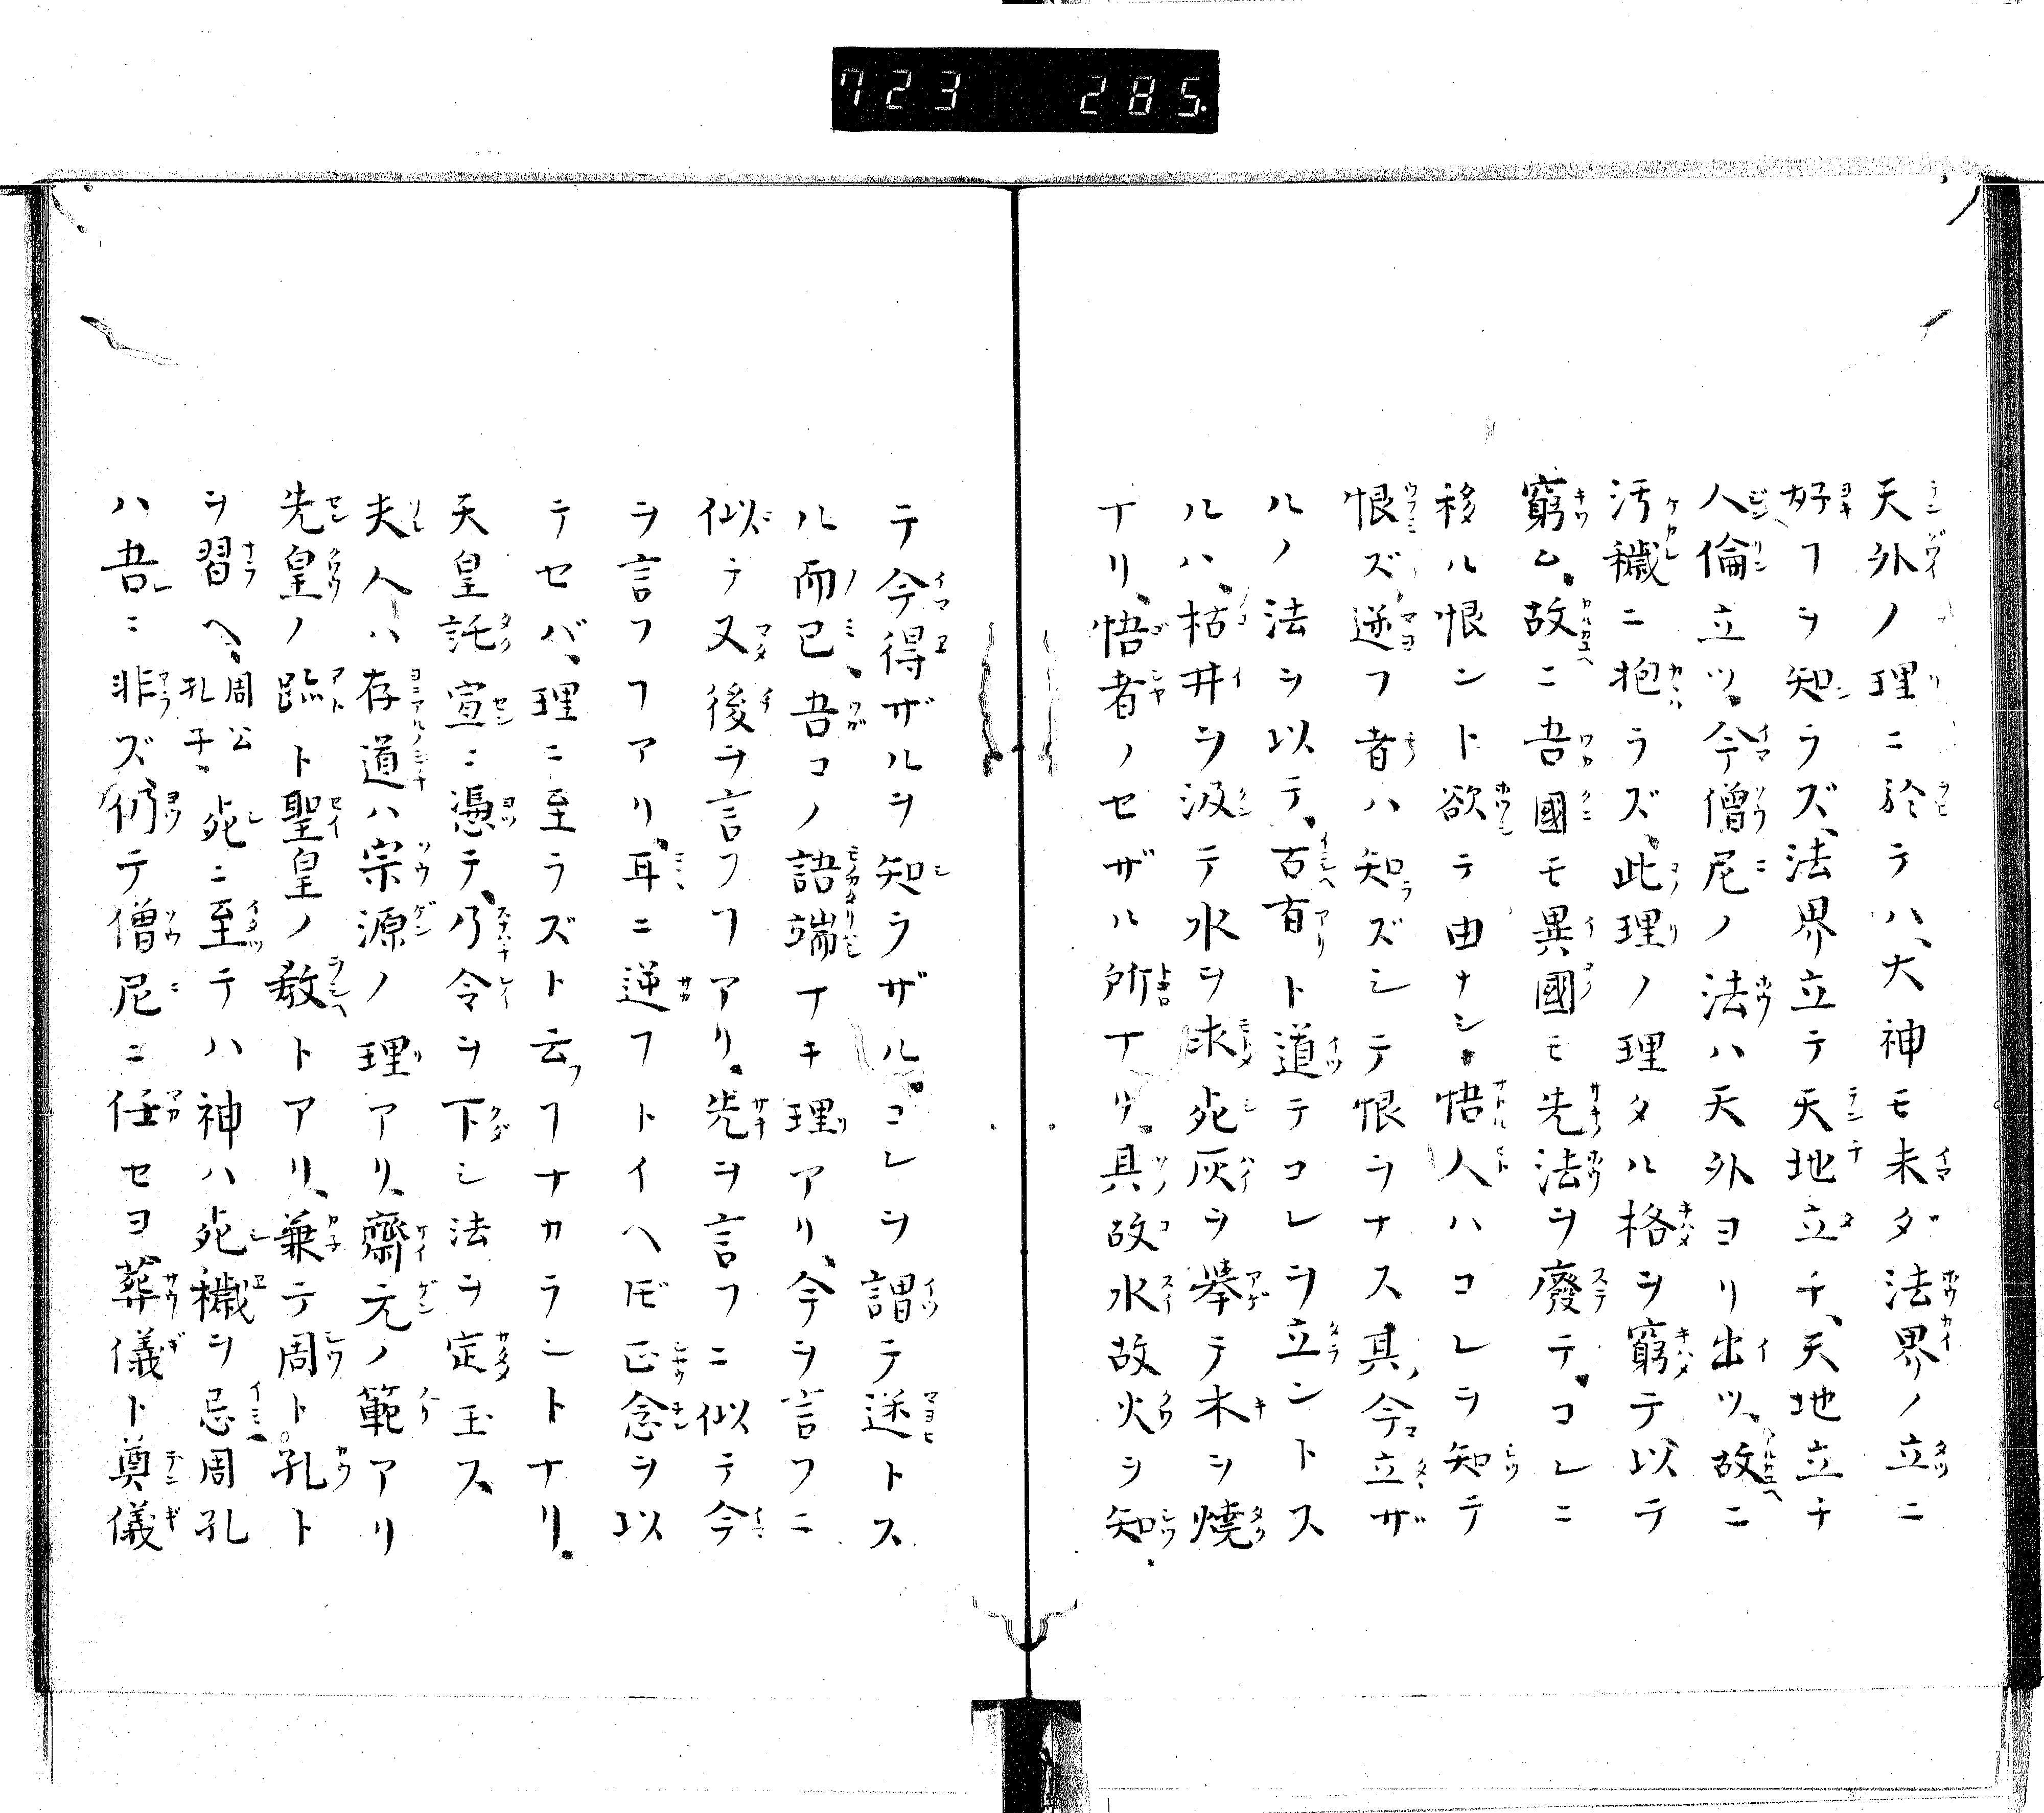 723 285
天外ノ理ニ於テハ、大神モ未ダ法界ノ立ニ
好フヲ知ラズ、法界立テ天地立チ、天地立チ
人倫立ツ。今僧尼ノ法ハ天外ヨリ出ツ、故ニ
汚穢ニ抱ラズ、此理ノ理タル格ヲ窮テ、以テ
窮ム。故ニ吾國モ異國モ先法ヲ廢テ。コレニ
移ル恨ント欲テ由ナシ。悟人ハコレヲ知テ
恨ズ、迷フ者ハ知ズシテ恨ヲナス其、今立ザ
ルノ法ヲ以テ、古有ト道テコレヲ立ントス
ルハ、枯井ヲ汲テ水ヲ求死灰ヲ舉テ木ヲ燒
ナリ、悟者ノセザル所ナリ。具故水故火ヲ知。
テ今得ザルヲ知ラザル。コレヲ謂テ迷トス
ル而已、吾コノ語端ナキ理アリ、今ヲ言フニ
似テ又後ヲ言フフアリ。先ヲ言フニ似テ今
ヲ言フフアリ、耳ニ逆フトイヘ𪜈正念ヲ以
テセバ、理ニ至ラズト云フナカラントナリ。
天皇託宣ニ憑テ、乃令ヲ下シ法ヲ定玉ス
夫人ハ存道ハ宗源ノ理アリ、齋元ノ範アリ
先皇ノ跡ト聖皇ノ教トアリ、兼テ周ト孔ト
ヲ習ヘ、周公孔子、死ニ至テハ神ハ死穢ヲ忌周孔
ハ吾ニ非ズ、仍テ僧尼ニ任セヨ葬儀ト奠儀